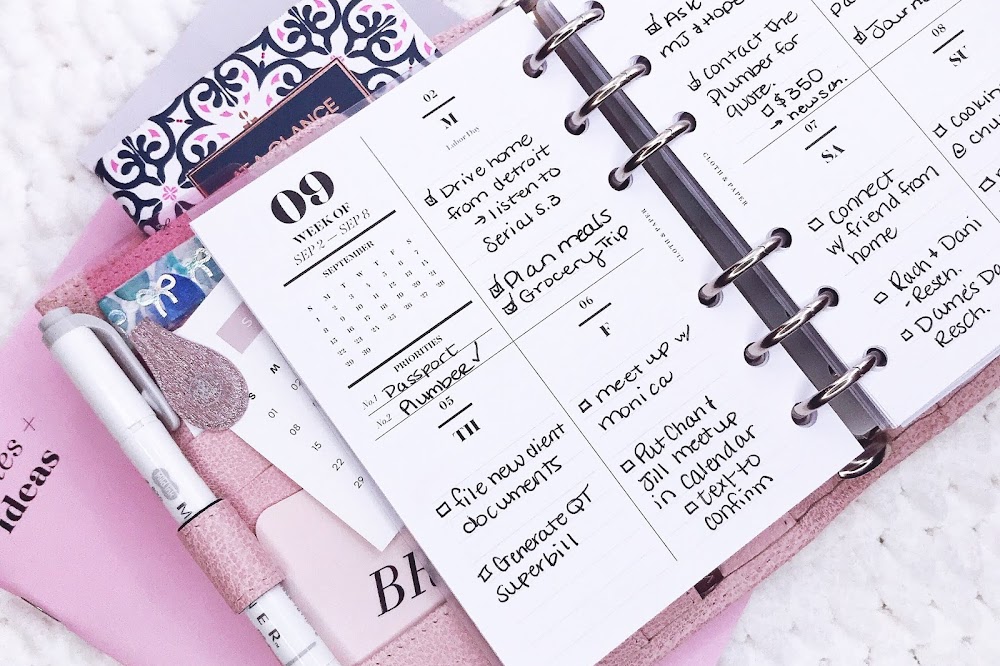 AT-A-GLANCE
09
WEEK OF
SEP 2 — SEP 8
SEPTEMBER
S M T W T F S
1 2 3 4 5 6 7
8 9 10 11 12 13 14
15 16 17 18 19 20 21
22 23 24 25 26 27 28
29 30
PRIORITIES
No.1 Passport
No.2 Plumber ✓
02
M
Labor Day
Drive home
from detroit
→ listen to
Serial S.3
Plan meals
Grocery Trip
05
TH
file new client
documents
Generate QT
superbill
06
F
meet up w/
monica
Put Chan &
Jill meetup
in calendar
text to
confirm
CLOTH & PAPER
CLOTH & PAPER
Ask
MJ & Hope
contact the
Plumber for
quote.
$350
→ newson.
Journal
07
SA
Connect
w/ friend from
home
08
SU
Cooking
@ chu
Rach & Dani
- Resch.
Dame's Da
Resch.
S
W
01
02
08
15
22
29
ideas
+